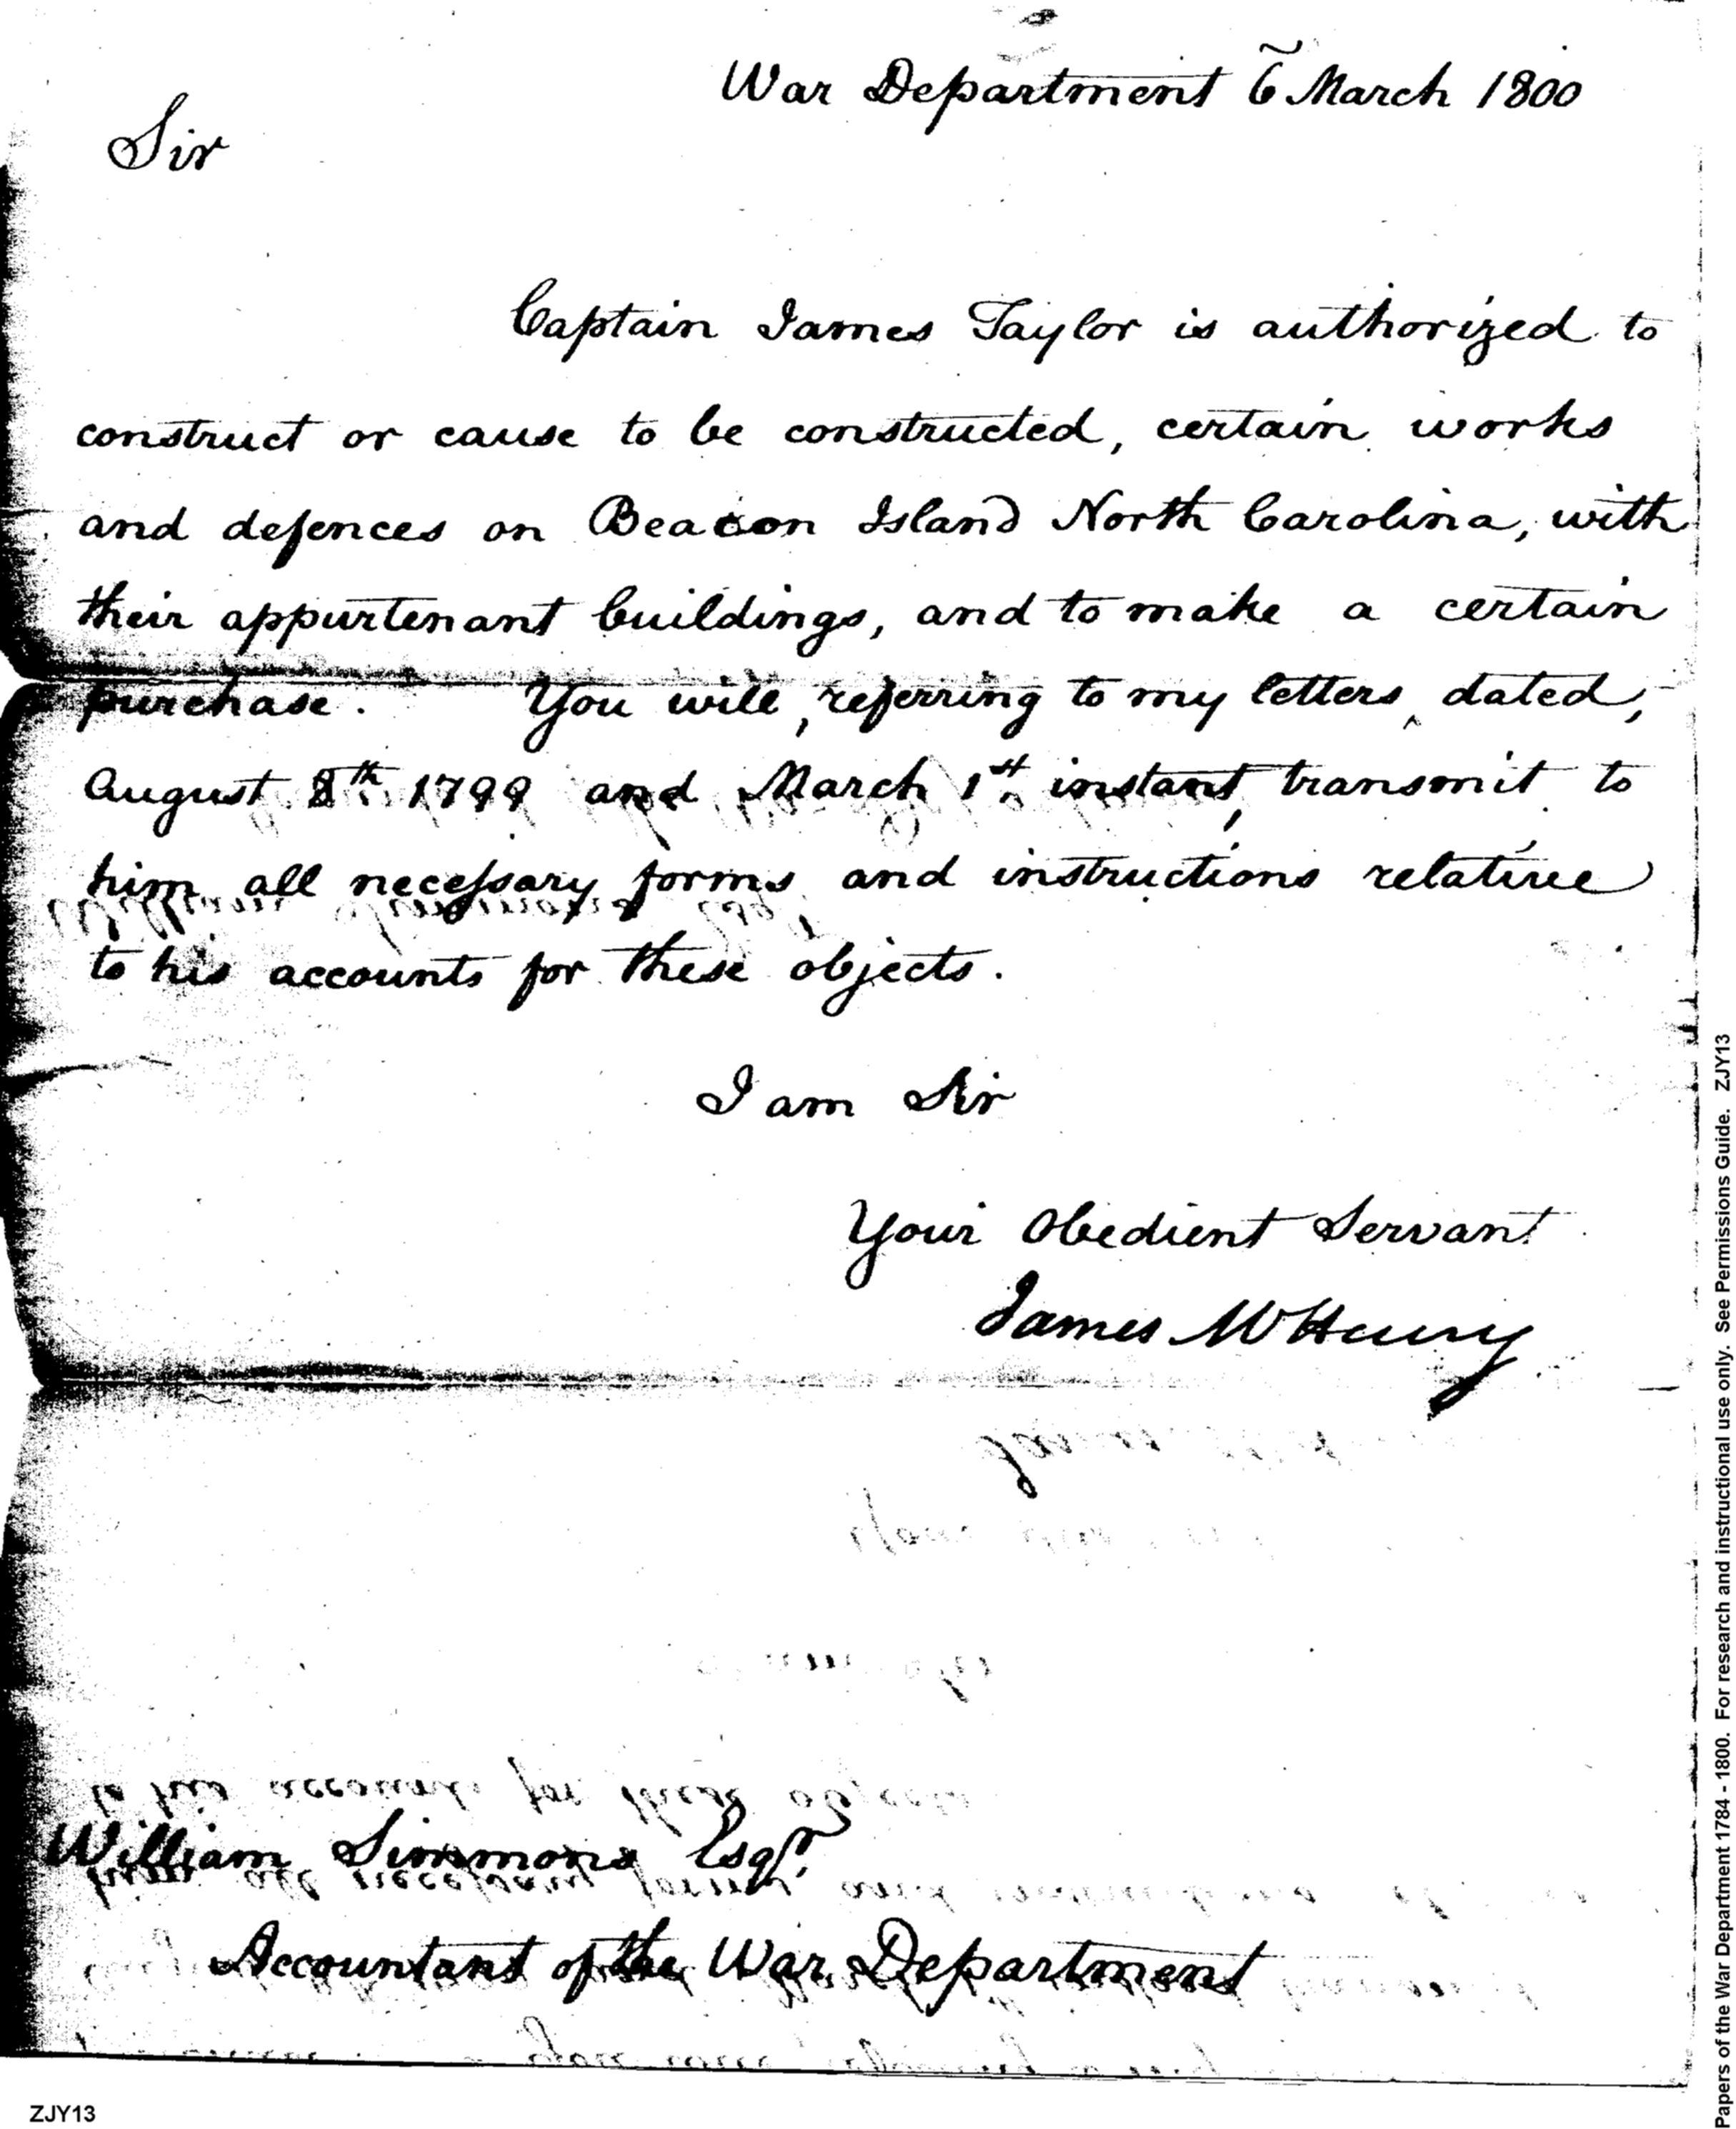 War Department 6 March 1800
Sir
Captain James Taylor is authorized to
construct or cause to be constructed, certain works
and defences on Beacon Island North Carolina, with
their appurtenant buildings, and to make a certain
purchase. You will, referring to my letters, dated,
August 8th 1799 and March 1st instant, transmit to
him all necessary forms and instructions relative
to his accounts for these objects.
I am Sir
Your Obedient Servant
James McHenry
William Simmons Esqr.
Accountant of the War Department
ZJY13
Papers of the War Department 1784 - 1800. For research and instructional use only. See Permissions Guide. ZJY13